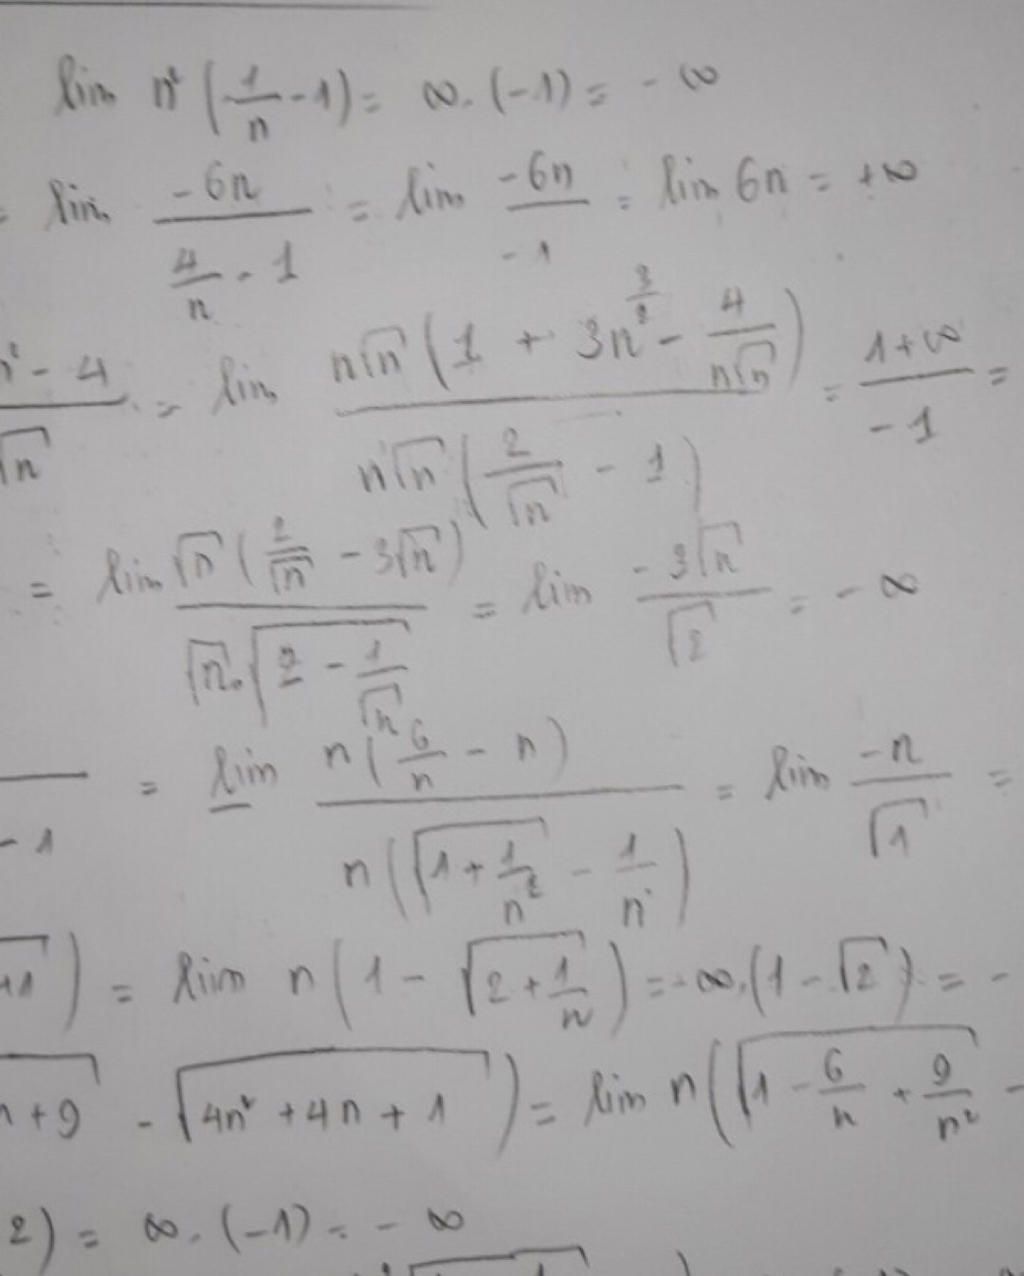 lim n² (1/n - 1) = ∞. (-1) = - ∞
= lim -6n / (4/n - 1) = lim -6n / -1 = lim 6n = +∞
n² - 4 / √n = lim n√n (1 + 3n^(3/2) - 4/(n√n)) / n√n (2/√n - 1) = 1+∞ / -1 =
= lim √n (2/√n - 3√n) / √n.√(2 - 1/√n) = lim -3√n / √2 = - ∞
- 1 = lim n(6/n - n) / n(√(1 + 1/n²) - 1/n) = lim -n / √1 =
+1) = lim n(1 - √(2 + 1/n)) = -∞.(1 - √2) = -
n + 9 - √(4n² + 4n + 1)) = lim n(√(1 - 6/n + 9/n² -
2) = ∞. (-1) = - ∞